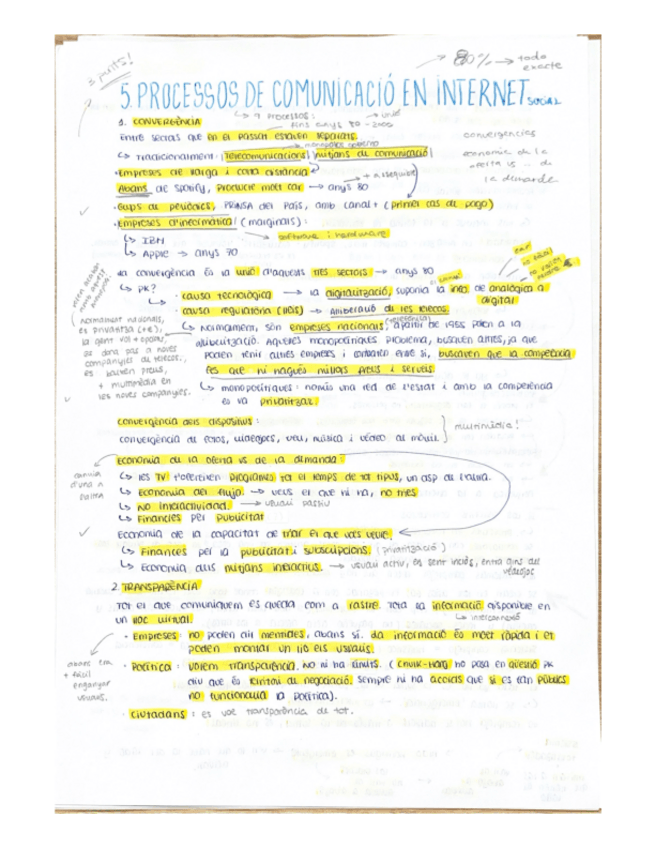 3 punts!
80% → toda exacte
5. PROCESSOS DE COMUNICACIÓ EN INTERNET SOCIAL
↳ 9 processos:
1. CONVERGÈNCIA
fins anys 80-2000
→ unió
Entre sectors que en el passat estaven separats.
monopolis govern
↳ Tradicionalment: Telecomunicacions / mitjans de comunicació
· Empreses de llarga i curta distància
Abans de Spotify, producte molt car → anys 80
+ assequible
· Grups de periòdics, PRINSA del País, amb canal + (primer cas de pago)
· Empreses d'informàtica (marginals):
↳ IBM
→ software i hardware
↳ Apple → anys 70
convergències
economia de la oferta vs de la demanda
La convergència és la unió d'aquests tres sectors → anys 80
↳ PK?
· causa tecnològica → la digitalització, suposa la de analògica a digital
· causa regulatòria (lleis) → alliberació de les telecos.
↳ Normalment, són empreses nacionals, a partir de 1985 passen a la
alliberització. Aquestes monopolítiques problema, busquen altres, ja que
poden tenir altres empreses i entre si, busquen que la competència
fes que hi hagués millors preus i serveis.
↳ monopolítiques: només una red de l'estat i amb la competència
es va privatitzar.
(Normalment nacionals, es privatitza (+€), la gent vol + opcions, es dona pas a noves companyies de telecos, es baixen preus, + multimèdia en les noves companyies.
Convergència dels dispositius:
convergència de fotos, videojocs, veu, música i vídeo al mòbil.
} multimèdia!
Economia de la oferta vs de la demanda:
canvia d'una a l'altra
↳ les TV t'ofereixen programes tot el temps de tot tipus, un cop de l'altra.
↳ Economia del flujo. → veus el que hi ha, no més
↳ No interactividad. → usuari passiu
↳ Financies per publicitat
Economia de la capacitat de triar el que vols veure.
↳ Finances per la publicitat i subscripcions. (privatització)
↳ Economia dels mitjans interactius. → usuari actiu, es sent inclòs, entra dins del videojoc
2. TRANSPARÈNCIA
Tot el que comuniquem es queda com a rastre. Tota la informació disponible en
un lloc virtual.
↳ interconnexió
· Empreses: no poden dir mentides, abans sí. La informació és molt ràpida i et
poden montar un lio els usuaris.
abans era + fàcil enganyar usuaris.
· Política: volem transparència. No hi ha límits. (Chulk-Harg ho posa en qüestió pk
diu que és l'eina de negociació. Sempre hi ha acords que si es fan públics
no funcionaria la política).
· Ciutadans: es vol transparència de tot.